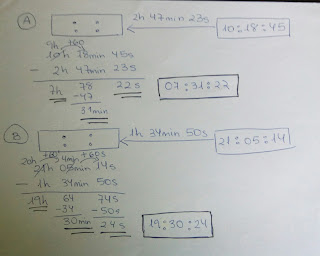 A 2h 47min 23s 10:18:45
9h +60
10h 18min 45s
- 2h 47min 23s
7h 78 22s 07:31:22
-47
31min
B 1h 34min 50s 21:05:14
20h +60 4min +60s
21h 05min 14s
- 1h 34min 50s
19h 64 74s
-34 -50s
30min 24s 19:30:24